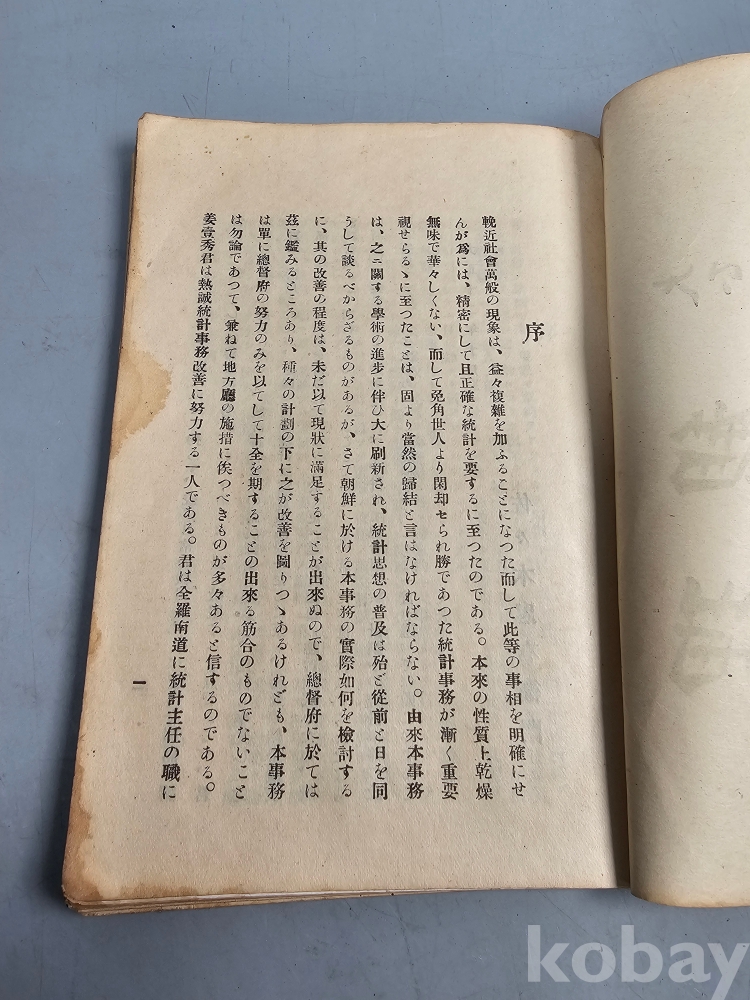 序
輓近社會萬般の現象は、益々複雜を加ふることになつた而して此等の事相を明確にせ
んが爲には、精密にして且正確な統計を要するに至つたのである。本來の性質上乾燥
無味で華々しくない、而して兎角世人より閑却セられ勝であつた統計事務が漸く重要
視せらるゝに至つたことは、固より當然の歸結と言はなければならない。由來本事務
は、之ニ關する學術の進步に伴ひ大に刷新され、統計思想の普及は殆ど從前と日を同
うして談るべからざるものがあるが、さて朝鮮に於ける本事務の實際如何を檢討する
に、其の改善の程度は、未だ以て現狀に滿足することが出來ぬので、總督府に於ては
茲に鑑みるところあり、種々の計劃の下に之が改善を圖りつゝあるけれども、本事務
は單に總督府の努力のみを以てして十全を期することの出來る筋合のものでないこと
は勿論であつて、兼ねて地方廳の施措に俟つべきものが多々あると信するのである。
姜壹秀君は熱誠統計事務改善に努力する一人である。君は全羅南道に統計主任の職に
一
kobay